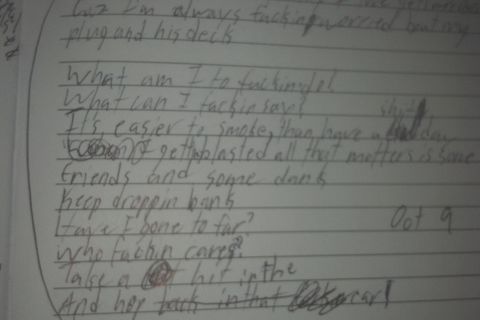 Cuz I'm always fucking worried bout my
plug and his deck
What am I to fuckin do!
What can I fuckin say!
shitty
It's easier to smoke, than have a day
I get blasted all that matters is some
friends and some dank
Keep droppin bank
Have I gone to far?
Oct 9
Who fuckin cares?
Take a hit in the
And hop back in that car!